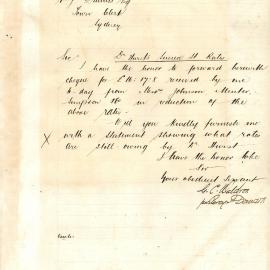 Town Clerk
Sydney
Sir
I have the honor to forward herewith
cheque for £ 16.17.8 received by me
to day from Messrs Johnson Minter,
Simpson &Co in reduction of the
above rates.
Will you kindly furnish me
with a statement showing what rates
are still owing by Dr
I have the honor to be
Sir
Your obedient Servant